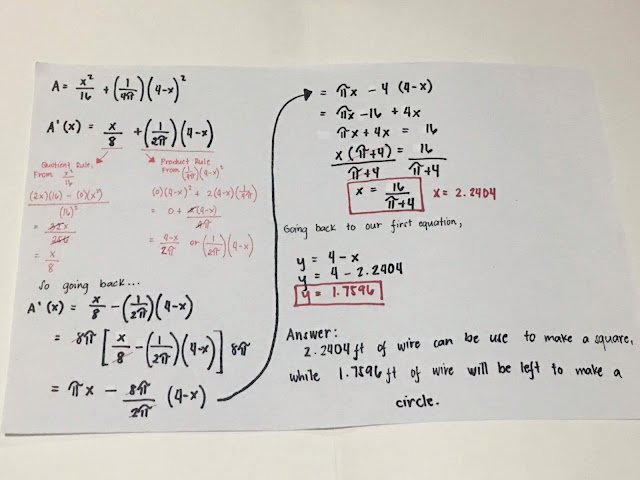 A = x²/16 + (1/4π)(4-x)²
A'(x) = x/8 + (1/2π)(4-x)
Quotient Rule,
From x²/16
(2x)(16) - (0)(x²)
(16)²
= 32x/256
= x/8
Product Rule
From (1/4π)(4-x)²
(0)(4-x)² + 2(4-x)(1/4π)
= 0 + 2(4-x)/4π
= 4-x/2π or (1/2π)(4-x)
So going back...
A'(x) = x/8 - (1/2π)(4-x)
= 8π [x/8 - (1/2π)(4-x)] 8π
= πx - 8π/2π (4-x)
= πx - 4 (4-x)
= πx - 16 + 4x
πx + 4x = 16
x(π+4)/π+4 = 16/π+4
x = 16/π+4 x = 2.2404
Going back to our first equation,
y = 4 - x
y = 4 - 2.2404
y = 1.7596
Answer:
2.2404 ft of wire can be use to make a square,
while 1.7596 ft of wire will be left to make a
circle.